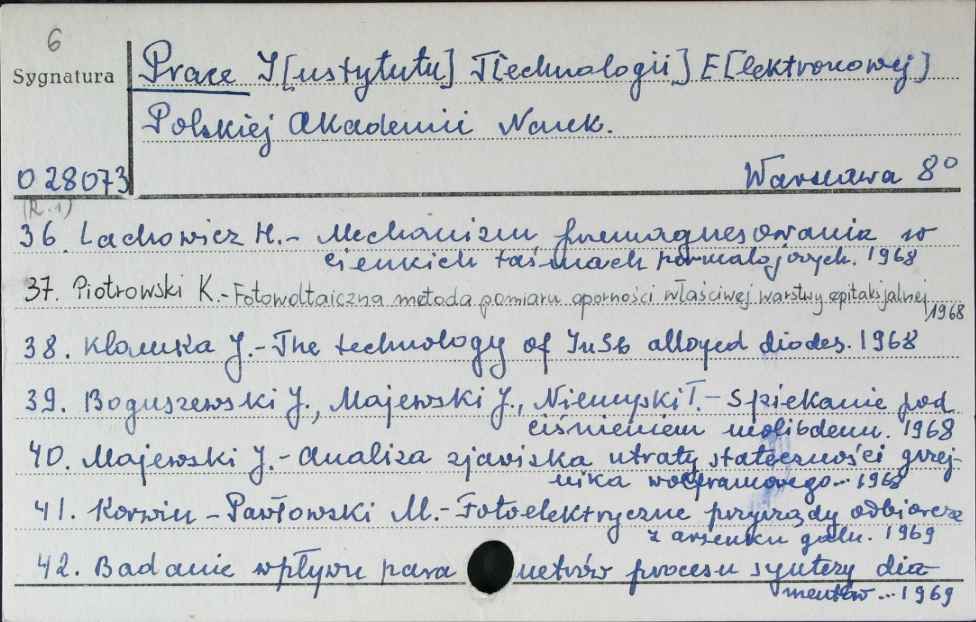 6
Sygnatura
Prace I[nstytutu] T[echnologii] E[lektronowej]
Polskiej Akademii Nauk.
O 28073
Warszawa 8°
(R. 1)
36. Lachowicz H.- Mechanizm przemagnesowania w
cienkich taśmach permalojowych. 1968
37. Piotrowski K.- Fotowoltaiczna metoda pomiaru oporności właściwej warstwy epitaksjalnej
1968
38. Klamka J.- The technology of InSb alloyed diodes. 1968
39. Boguszewski J., Majewski J., Niemyski T.- Spiekanie pod
ciśnieniem molibdenu. 1968
40. Majewski J.- Analiza zjawiska utraty stateczności grzej-
nika wolframowego... 1968
41. Korwin-Pawłowski M.- Fotoelektryczne przyrządy odbiorcze
z arsenku galu. 1969
42. Badanie wpływu para metrów procesu syntezy dia-
mentów... 1969